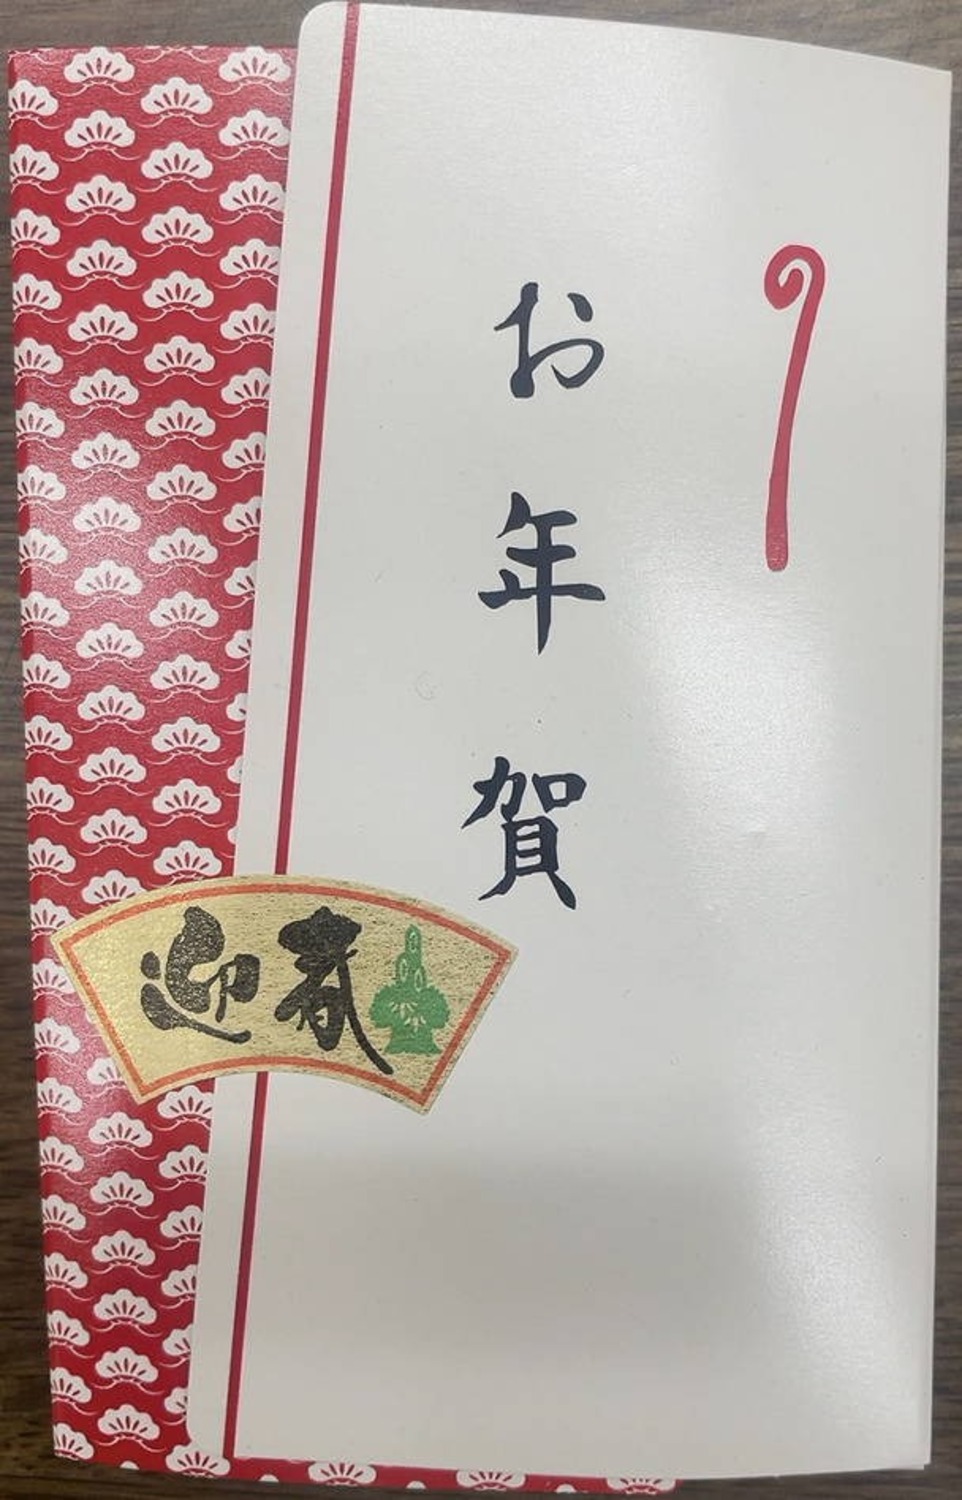 お年賀
迎春